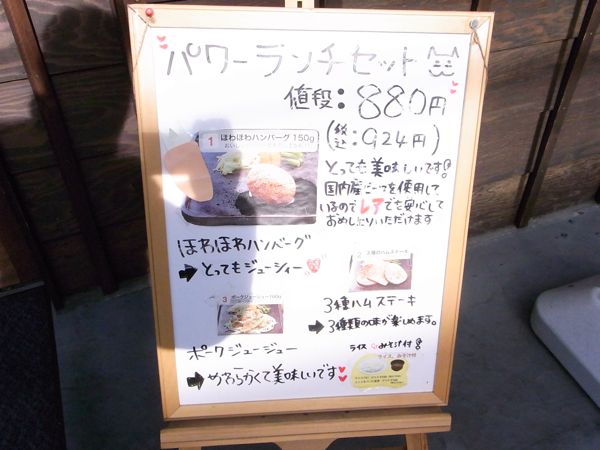 パワーランチセット
値段:880円
(税込:924円)
1 ほわほわハンバーグ 150g
とっても美味しいです!
国内産ビーフを使用して
いるのでレアでも安心して
おめし上がりいただけます
ほわほわハンバーグ
➡とってもジューシィー
2 3種のハムステーキ
3種ハムステーキ
➡3種類の味が楽しめます。
3 ポークジュージュー160g
ポークジュージュー
➡やわらかくて美味しいです
ライス みそ汁付
ライス、みそ汁付